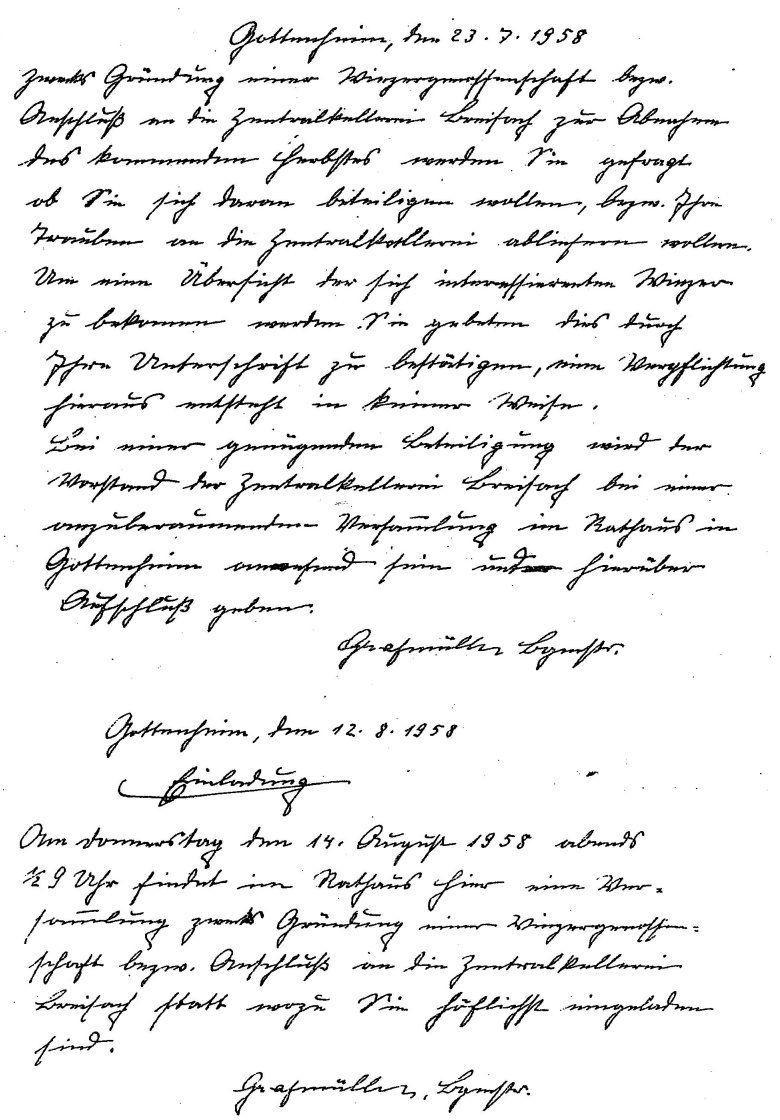 Gottenheim, den 23. 7. 1958
Zwecks Gründung einer Winzergenossenschaft bezw.
Anschluß an die Zentralkellerei Breisach zur Abnahme
des kommenden Herbstes werden Sie gefragt
ob Sie sich daran beteiligen wollen, bezw. Ihre
Trauben an die Zentralkellerei abliefern wollen.
Um eine Übersicht der sich interessierenten Winzer
zu bekommen werden Sie gebeten dies durch
Ihre Unterschrift zu bestätigen, eine Verpflichtung
hieraus entsteht in keiner Weise.
Bei einer genügenden Beteiligung wird der
Vorstand der Zentralkellerei Breisach bei einer
anzuberaumenden Versam̅lung im Rathaus in
Gottenheim anwesend sein und hierüber
Aufschluß geben.
Grafmüller Bgmstr.
Gottenheim, den 12. 8. 1958
Einladung
Am Donnerstag den 14. August 1958 abends
½ 9 Uhr findet im Rathaus hier eine Ver-
sam̅lung zwecks Gründung einer Winzergenossen-
schaft bezw. Anschluß an die Zentralkellerei
Breisach statt wozu Sie höflichst eingeladen
sind.
Grafmüller, Bgmstr.